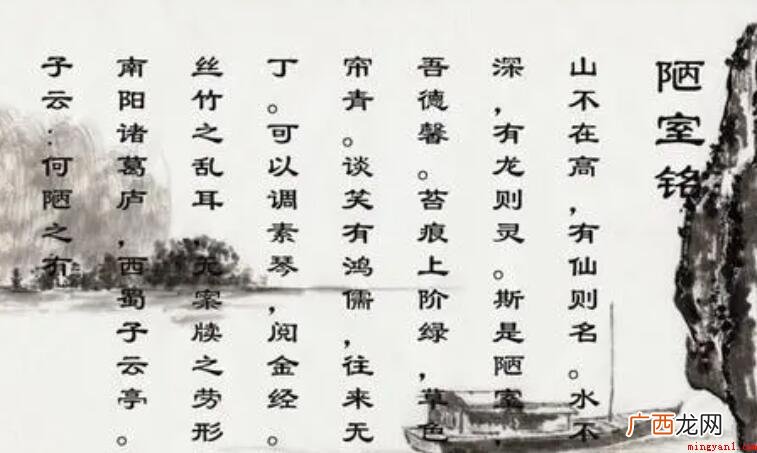 陋室铭
山不在高,有仙则名。水不
深,有龙则灵。斯是陋室,
吾德馨。苔痕上阶绿,草色
帘青。谈笑有鸿儒,往来无
丁。可以调素琴,阅金经。
丝竹之乱耳,无案牍之劳形
南阳诸葛庐,西蜀子云亭。
子云:何陋之有
广西龙网
mingyan1.com